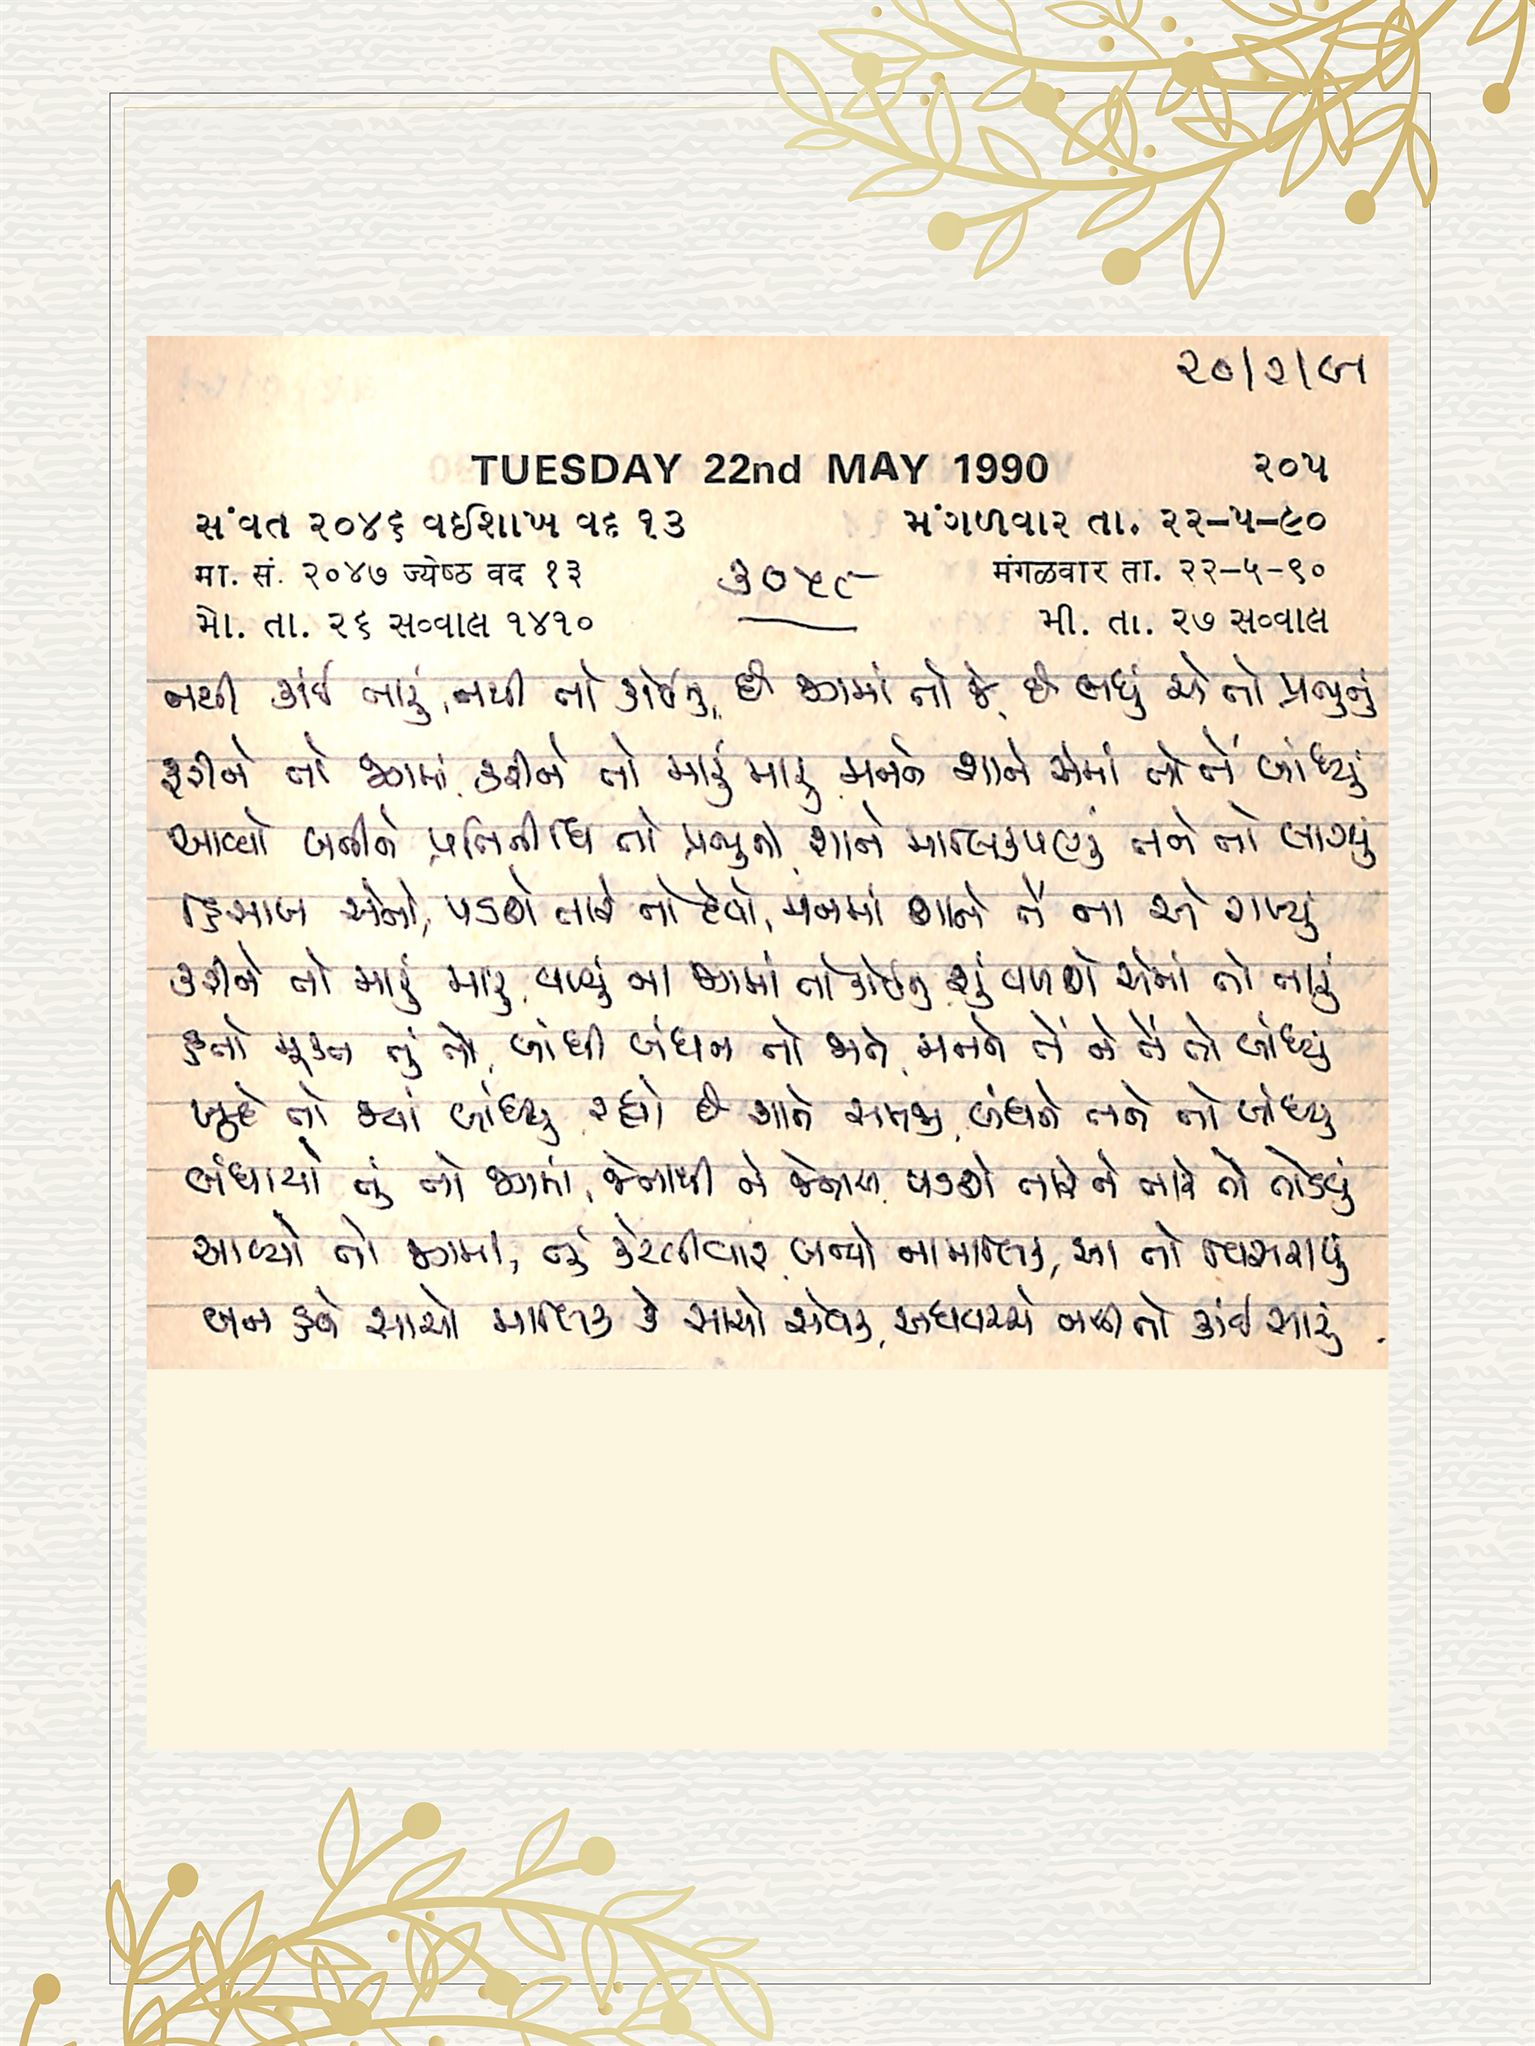 ૨૦/૨/૯૧
TUESDAY 22nd MAY 1990 ૨૦૫
સંવત ૨૦૪૬ વઈશાખ વદ ૧૩ મંગળવાર તા. ૨૨–૫–૯૦
मा. सं. २०४७ ज्येष्ठ वद १३ ૩૦૫૯ मंगळवार ता. २२–५–९०
મો. તા. ૨૬ સવ્વાલ ૧૪૧૦ મી. તા. ૨૭ સવ્વાલ
નથી કાંઈ તારું, નથી તો કોઈનું, છે જગમાં તો જે, છે બધું એ તો પ્રભુનું
કરીને તો જગમાં, કરીને તો મારું મારું, મનને શાને એમાં તો તેં બાંધ્યું
આવ્યો બનીને પ્રતિનીધિ તો પ્રભુનો, શાને માલિકપણું તને તો લાગ્યું
હિસાબ એનો, પડશે તારે તો દેવો, મનમાં શાને તેં ના એ રાખ્યું
કરીને તો મારું મારું, વળ્યું ના જગમાં તો કોઈનું, શું વળશે એમાં તો તારું
હતો મુક્ત તું તો, બાંધી બંધન તો જાતે, મનને તેં ને તેં તો બાંધ્યું
ખુદે તો ક્યાં બાંધ્યું, રહ્યો છે શાને સમજી, બંધને તને તો બાંધ્યું
બંધાયો તું તો જગમાં, જેનાથી ને જેનાથી, પડશે તારે ને તારે તો તોડવું
આવ્યો તો જગમાં, તું કેટલીવાર, બન્યો ના માલિક, આ તો વિસરાયું
બન હવે સાચો માલિક કે સાચો સેવક, અધવચ્ચે નથી તો કાંઈ સારું